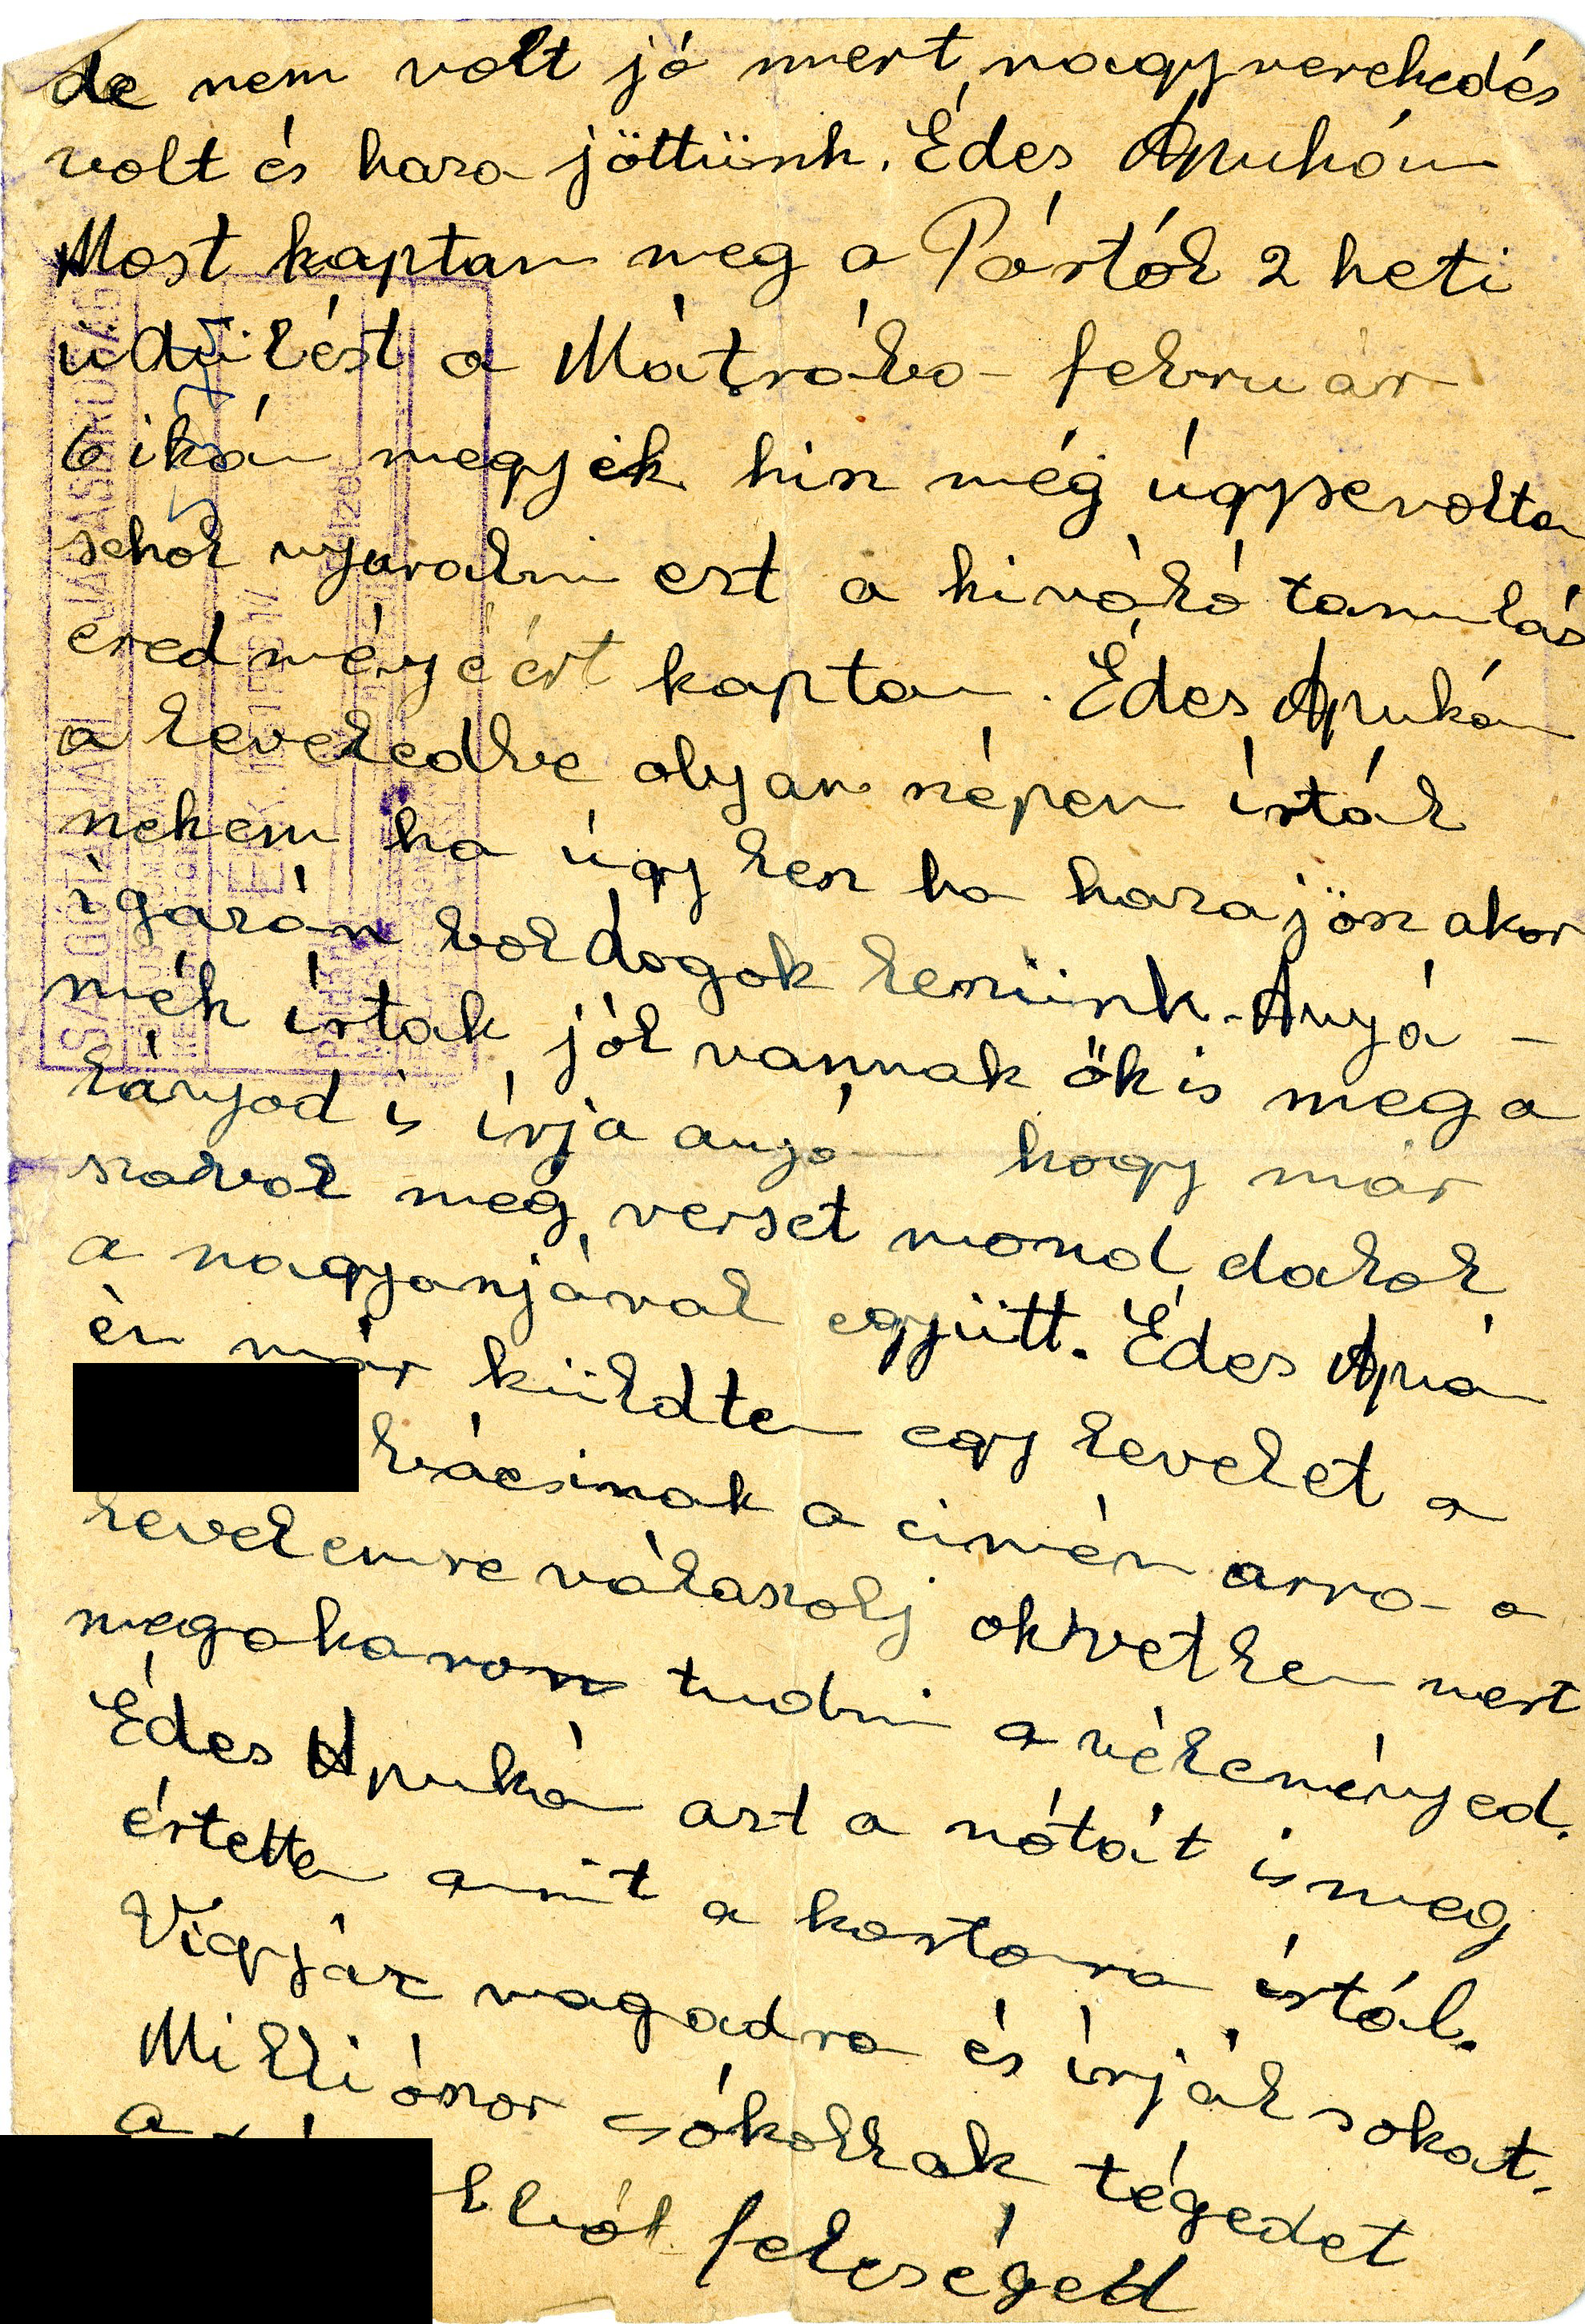 de nem volt jó mert nagy verekedés
volt és haza jöttünk. Édes Apukám
Most kaptam meg a Pártól 2 heti
üdülést a Mátrába február
6 ikán megyek hisz még úgyse voltam
sehol nyaralni ezt a kiváló tanulás
eredményéért kaptam. Édes Apukám
a leveledbe olyan szépen írtál
nekem ha úgy lesz ha hazajösz akor
igazán boldogok leszünk. Anyá-
mék írtak jól vannak ők is meg a
lányod is írja anyám hogy már
szaval meg verset mond dalol
a nagyanjával együtt. Édes Apám
én már küldtem egy levelet a
bácsinak a címén arra a
levelemre válaszolj okvetlen mert
megakarom tudni a véleményed.
Édes Apukám azt a nótát is meg
értettem amit a kartonra írtál.
Vigyáz magadra és írjál sokat.
Milliószor csókollak tégedet
a
feleséged
SALGÓTARJÁNI